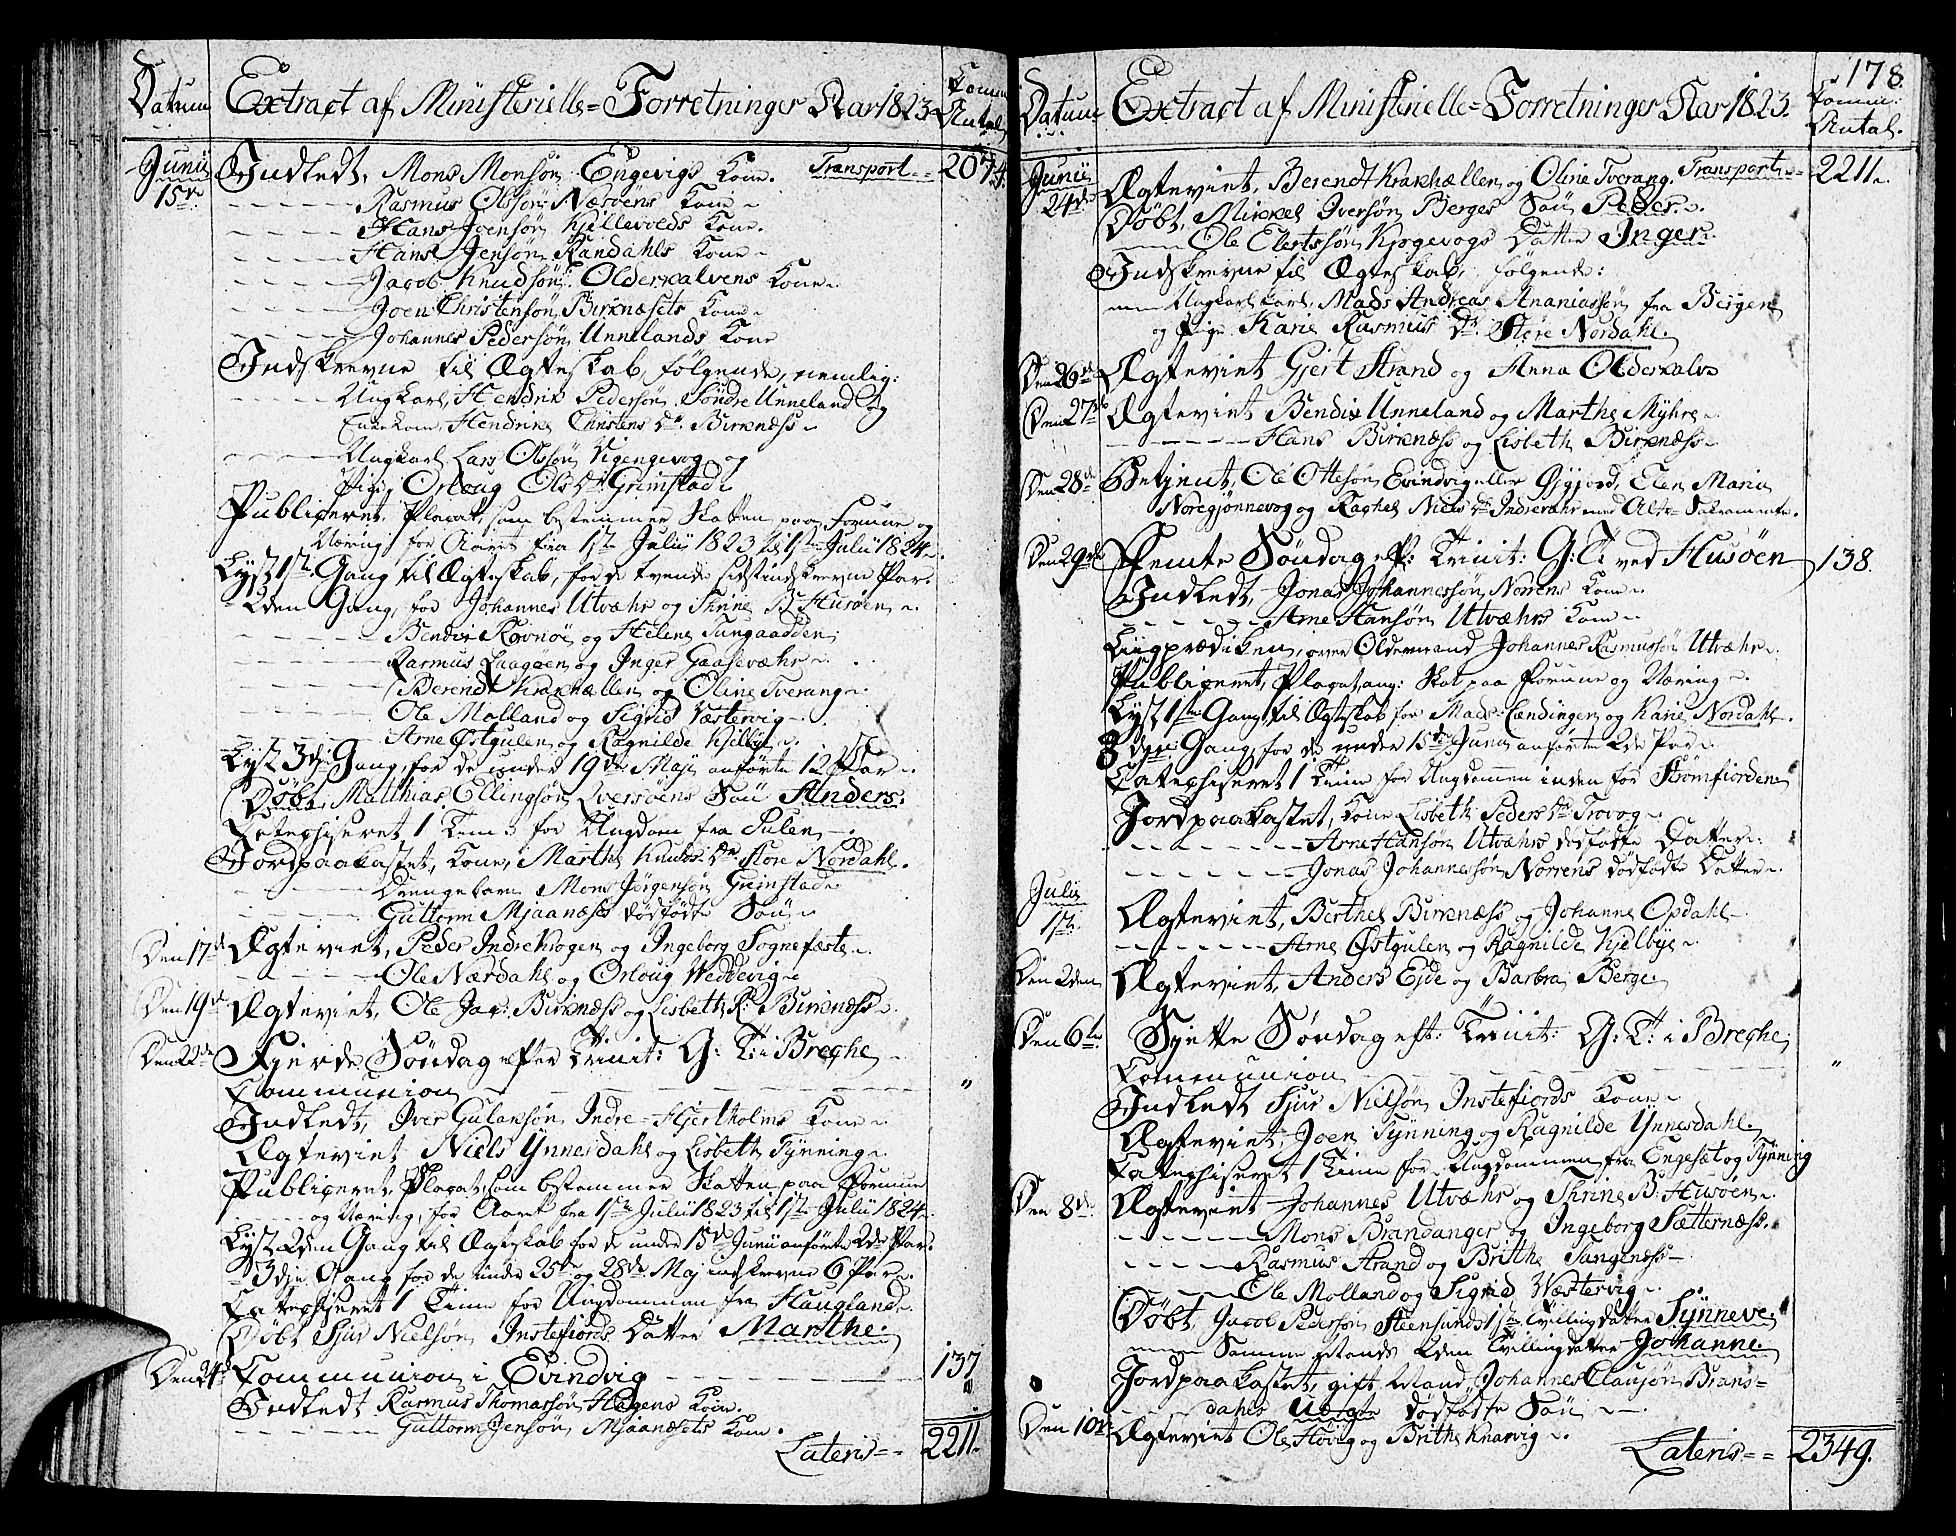 Datum Extract af Ministerielle=Forretninger Aar 1823. Comm: Antal
Junii 15de Indledt, Mons Monsøn Engevigs Kone. Transport -- 2074.
Rasmus Olssøn Næsvens Kone
Hans Joensøn Kjellevolds Kone.
Hans Jensøn Randahls Kone
Jacob Knudsøn Olderkalvens Kone.
Joen Christensøn Birknæsets Kone
Johannes Pedersøn Unnelands Kone
Indskrevne til Ægteskab, følgende, nemlig:
Ungkarl, Hendrik Pedersøn Søndre Unneland og
Enkekone, Hendrike Christens Dr. Birknæss
Ungkarl Lars Olssøn Vigengevog og
Pige Orloug Ols Dr. Grimstad
Publiceret, Placat, som bestemmer Skatten paa Formue og
Næring for Aaret fra 1ste Julii 1823 til 1ste Julii 1824
Lyst 1ste Gang til Ægteskab, for de tvende sidstindskrevne Par.
2den Gang, for Johannes Utvæhr og Thrine B. Husøen
Bendix Ravnøe og Helene Tungaadden
Rasmus Laagøen og Inger Gaasevæhr
Berendt Krakhællen og Oline Tverang
Ole Molland og Sigrid Væstervig
Arne Østgulen og Ragnilde Kjelbye
Lyst 3die Gang, for de under 19de Maji anførte 12 Par
Døbt, Matthias Ellingsøn Iversøens Søn Anders.
Catechiseret 1 Time for Ungdom fra Sulen
Jordpaakastet, Kone, Marthe Knuds Dr. Store Nordahl.
Drengebarn Mons Jørgensøn Grimstad
Guttorm Mjaanæss dødfødte Søn
Den 17de Ægteviet, Peder Indre Krogen og Ingeborg Sognefæste
Ole Nærdahl og Orloug Weddevig
Den 19de Ægteviet, Ole Jac: Birknæss og Lisbeth R: Birknæss
Den 22de Fjerde Søndag efter Trinit: G: T: i Breche
Communion "
Indledt, Iver Gulaksøn Indre-Hjertholms Kone
Ægteviet Niels Ynnesdahl og Lisbeth Tynning
Publiceret, Placat som bestemmer Skatten paa Formue
og Næring, for Aaret fra 1ste Julii 1823 til 1ste Julii 1824
Lyst 2den Gang til Ægteskab for de under 15de Junii anførte 2de Par.
3die Gang for de under 25de og 28de Maj indskrevne 6 Par
Catechiseret 1 Time for Ungdommen fra Haugland
Døbt Sjur Nielsøn Instefjords Datter Marthe.
Den 24de Communion i Evindvig 137
Indledt Rasmus Thomassøn Hagens Kone.
Guttorm Jensøn Mjaanæsets Kone.
Lateris -- 2211.
178
Datum Extract af Ministerielle=Forretninger Aar 1823. Comm: Antal.
Junii 24de Ægteviet, Berendt Krakhællen og Oline Tverang. Transport -- 2211.
Døbt, Mikkel Iversøn Berges Søn Peder.
Ole Elertssøn Kjøgevogs Datter Inger.
Indskrevne til Ægteskab, følgende:
Ungkarl, Mads Andreas Ananiassøn fra Bergen
og Pige Karie Rasmus Dr. Store Nordahl.
Den 26de Ægteviet Gjert Strand og Anna Olderkalv
Den 27de Ægteviet Bendix Unneland og Marthe Myhre
Hans Birknæss og Lisbeth Birknæss
Den 28de Betjent, Ole Ottesøn Evindvig eller Gygjord, Elen Maria
Noregjønnevog og Raghel Niels Dr. Indrevær med Alt: Sakramente.
Den 29de Femte Søndag eft: Trinit: G: T: ved Husøen 138.
Indledt, Jonas Johannessøn Norrens Kone
Arne Hansøn Utvæhrs Kone
Liigprædiken, over Oldermand Johannes Rasmussøn Utvæhr
Publiceret, Placat, ang: Skat paa Formue og Næring
Lyst 1ste Gang, til Ægteskab for Mads Lændingen og Karie Nordahl.
3die Gang, for de under 15de Junii anførte 2de Par
Catechiseret 1 Time for Ungdommen inden for Strømfjorden
Jordpaakastet, Kone Lisbeth Peders Dr. Trovog
Arne Hansøn Utvæhrs dødfødte Datter
Jonas Johannessøn Norrens dødfødte Datter
Julii 1ste Ægteviet, Berthel Birknæss og Johanne Opdahl
Arne Østgulen og Ragnilde Kjelbye
Den 2den Ægteviet, Anders Eide og Barbra Berge
Den 6te Sjette Søndag eft: Trinit: G: T: i Breche
Communion "
Indledt Sjur Nielsøn Instefjords Kone
Ægteviet, Joen Tynning og Ragnilde Ynnesdahl
Catechiseret 1 Time for Ungdommen fra Engesæt og Tynning
Den 8de Ægteviet Johannes Utvæhr og Thrine B: Husøen
Mons Brandanger og Ingeborg Sætternæss.
Rasmus Strand og Brithe Tungenæss
Ole Molland og Sigrid Wæstervig
Døbt Jacob Pedersøn Steensunds 1ste Tvillingdatter Synneve
Samme Mands 2den Tvillingdatter Johanne.
Jordpaakastet, gift Mand, Johannes Clausøn Brans-
dahls Udøbt dødfødte Søn
Den 10de Ægteviet Ole Høvig og Brithe Knarvig
Lateris -- 2349.